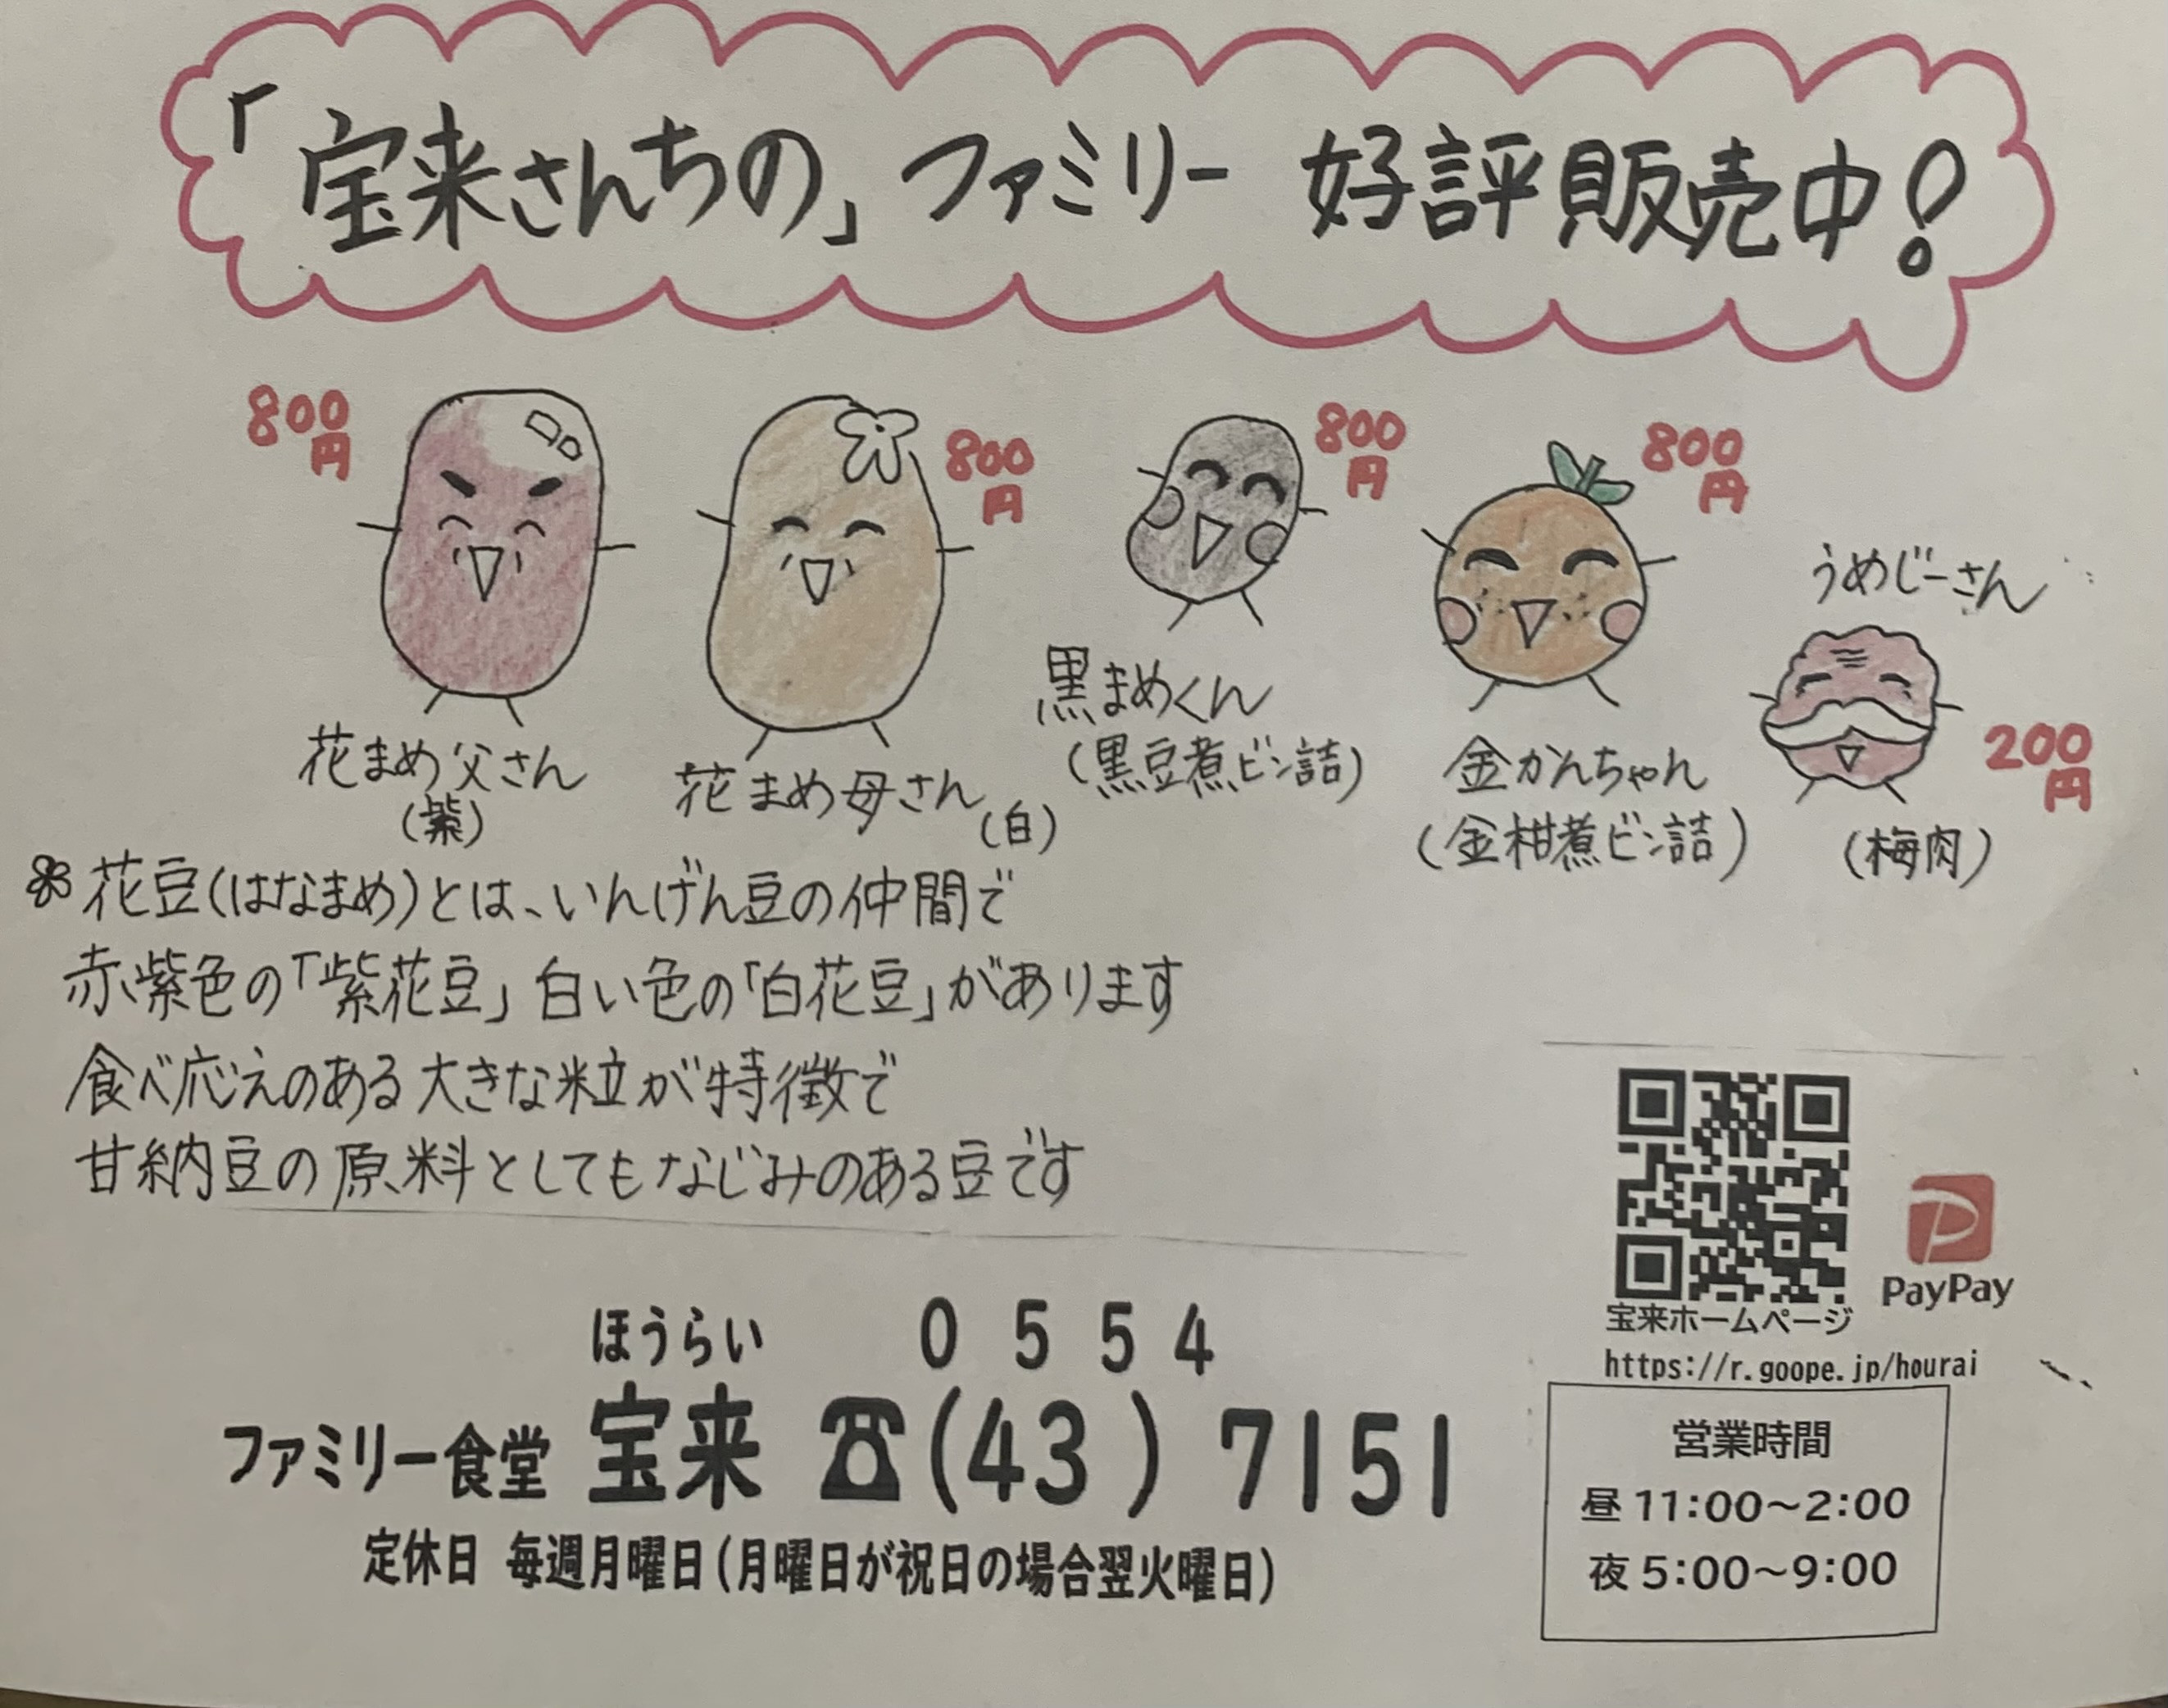 「宝来さんちの」ファミリー 好評販売中!
800円
800円
800円
800円
うめじーさん
200円
花まめ父さん
(紫)
花まめ母さん(白)
黒まめくん
(黒豆煮ビン詰)
金かんちゃん
(金柑煮ビン詰)
(梅肉)
花豆(はなまめ)とは、いんげん豆の仲間で
赤紫色の「紫花豆」白い色の「白花豆」があります
食べ応えのある大きな粒が特徴で
甘納豆の原料としてもなじみのある豆です
PayPay
宝来ホームページ
https://r.goope.jp/hourai
ほうらい 0554
ファミリー食堂 宝来 ☎(43)7151
定休日 毎週月曜日(月曜日が祝日の場合翌火曜日)
営業時間
昼11:00～2:00
夜5:00～9:00